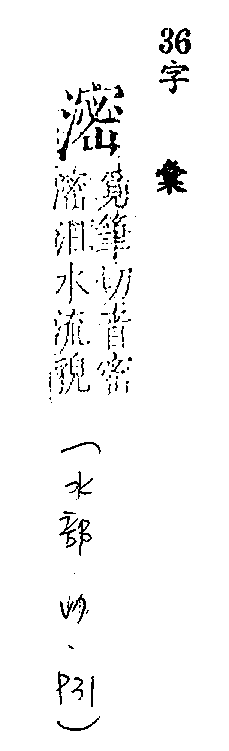 36字彙
滵
覓筆切音密
滵汨水流貌
(水部.
.P31)